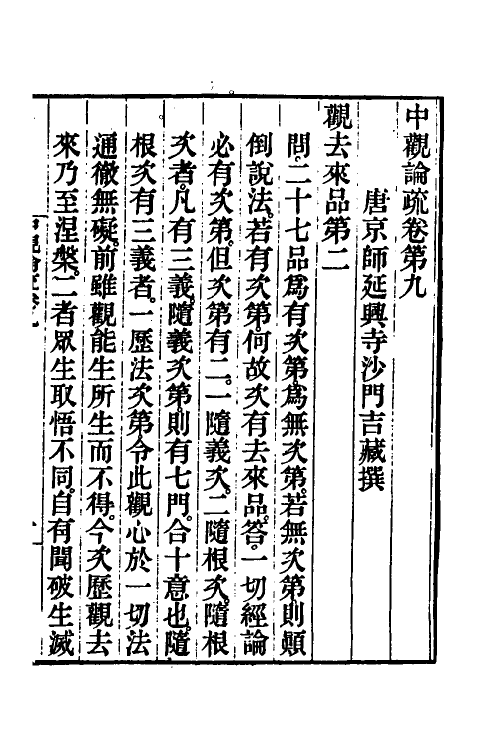 中觀論疏卷第九
唐京師延興寺沙門吉藏撰
觀去來品第二
問。二十七品爲有次第。爲無次第。若無次第則顛
倒說法。若有次第。何故次有去來品。答。一切經論
必有次第。但次第有二。一隨義次。二隨根次。隨根
次者。凡有三義。隨義次第。則有七門。合十意也。隨
根次有三義者。一歷法次第。令此觀心於一切法
通徹無礙。前雖觀能生所生而不得。今次歷觀去
來乃至涅槃。二者眾生取悟不同。自有聞破生滅